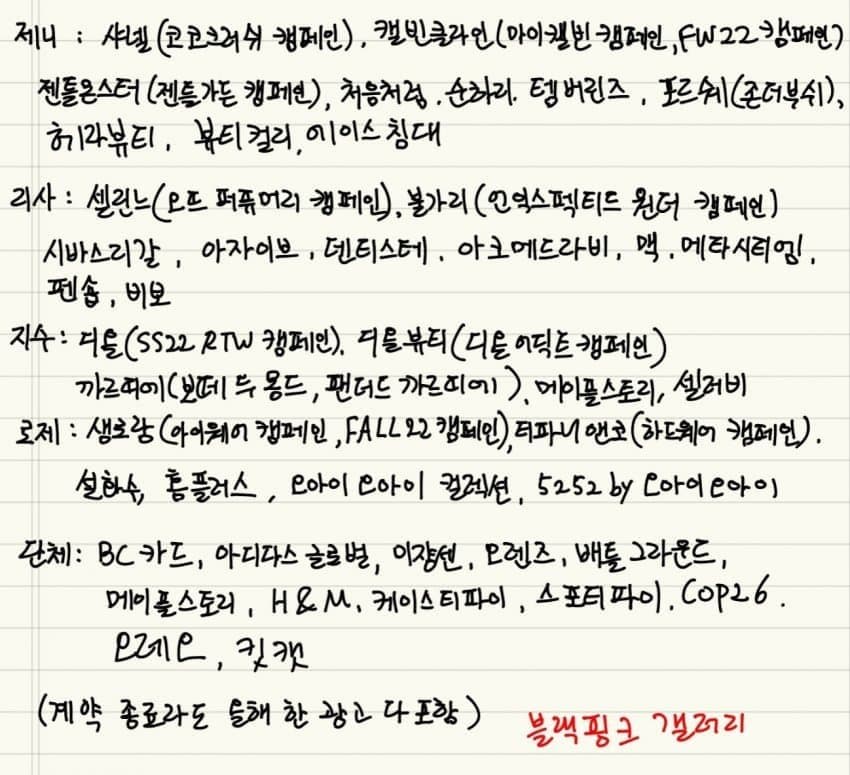 제니 : 샤넬(코코크러쉬 캠페인), 캘빈클라인(마이캘빈 캠페인, FW22 캠페인)
젠틀몬스터(젠틀가든 캠페인), 처음처럼, 순하리, 템버린즈, 포르쉐(존더부쉬),
헤라뷰티, 뷰티컬리, 에이스침대
리사 : 셀린느(오뜨 퍼퓨머리 캠페인), 불가리(언익스펙티드 원더 캠페인)
시바스리갈, 아자이브, 덴티스테, 아크메드라비, 맥, 메타시티엠,
펜숍, 비보
지수 : 디올(SS22 RTW 캠페인), 디올뷰티(디올어딕트캠페인)
까르띠에(보떼 두 몽드, 팬더드 까르띠에), 메이플스토리, 셀러비
로제 : 생로랑(아이웨어 캠페인, FALL22 캠페인), 티파니앤코(하드웨어 캠페인).
설화수, 홈플러스, 오아이오아이 컬렉션, 5252 by 오아이오아이
단체 : BC카드, 아디다스글로벌, 이쟝센, 오렌즈, 배틀그라운드,
메이플스토리, H&M, 케이스티파이, 스포티파이, COP26.
오레오, 킷캣
(계약 종료라도 올해 한 광고 다 포함)
블랙핑크 갤러리